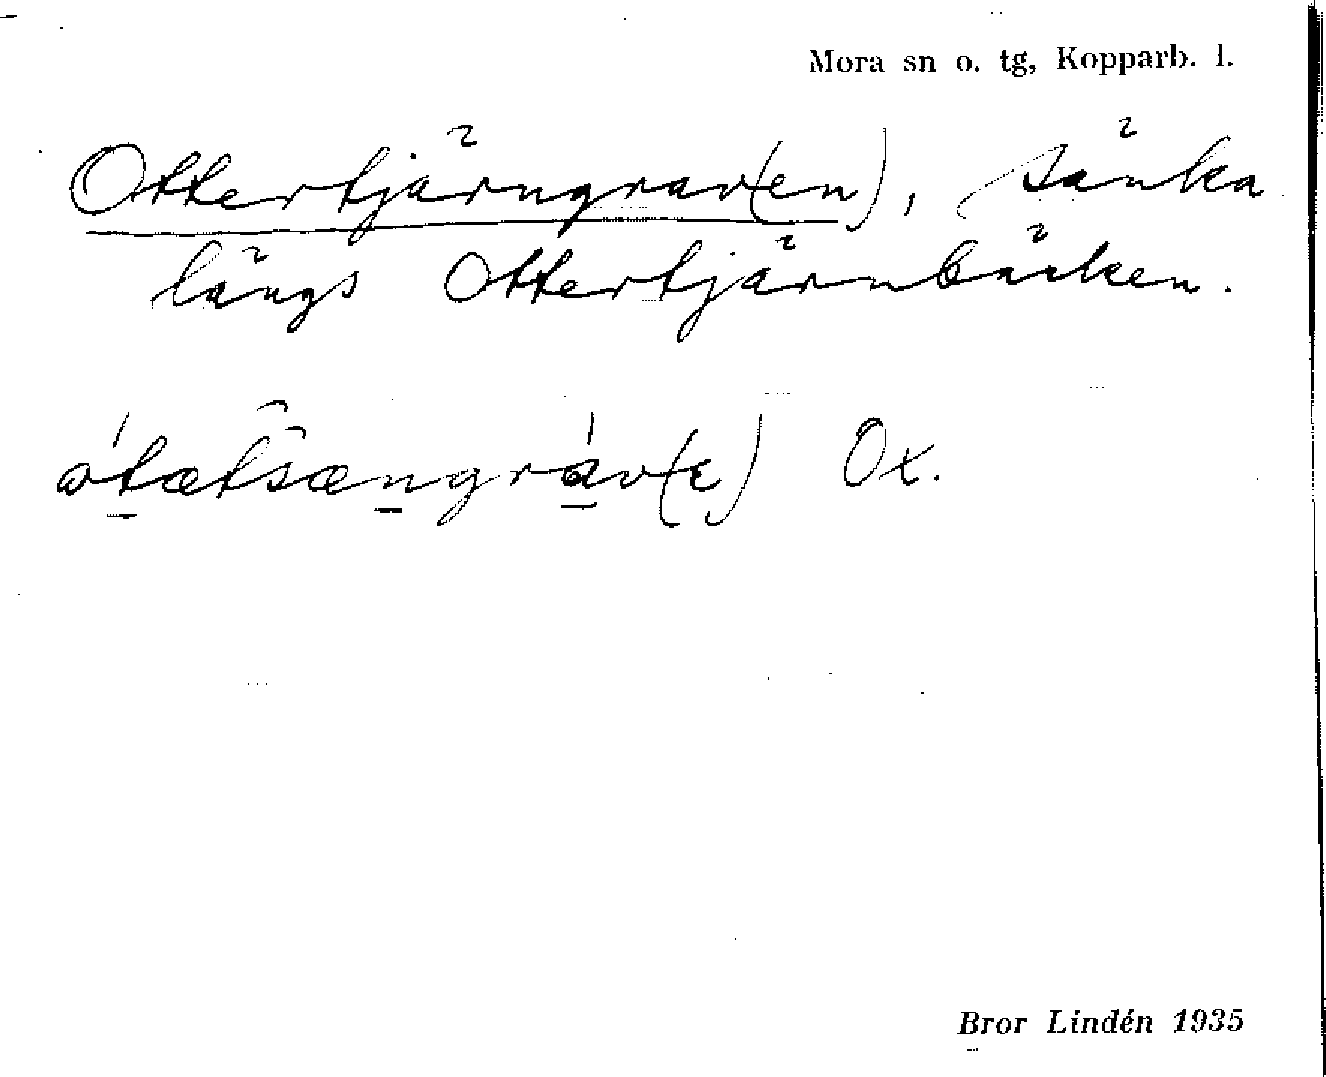 Mora sn o. tg, Kopparb. l.
Ottertjärngrav(en), sänka
längs Ottertjärnbäcken.
Ox.
Bror Lindén 1935